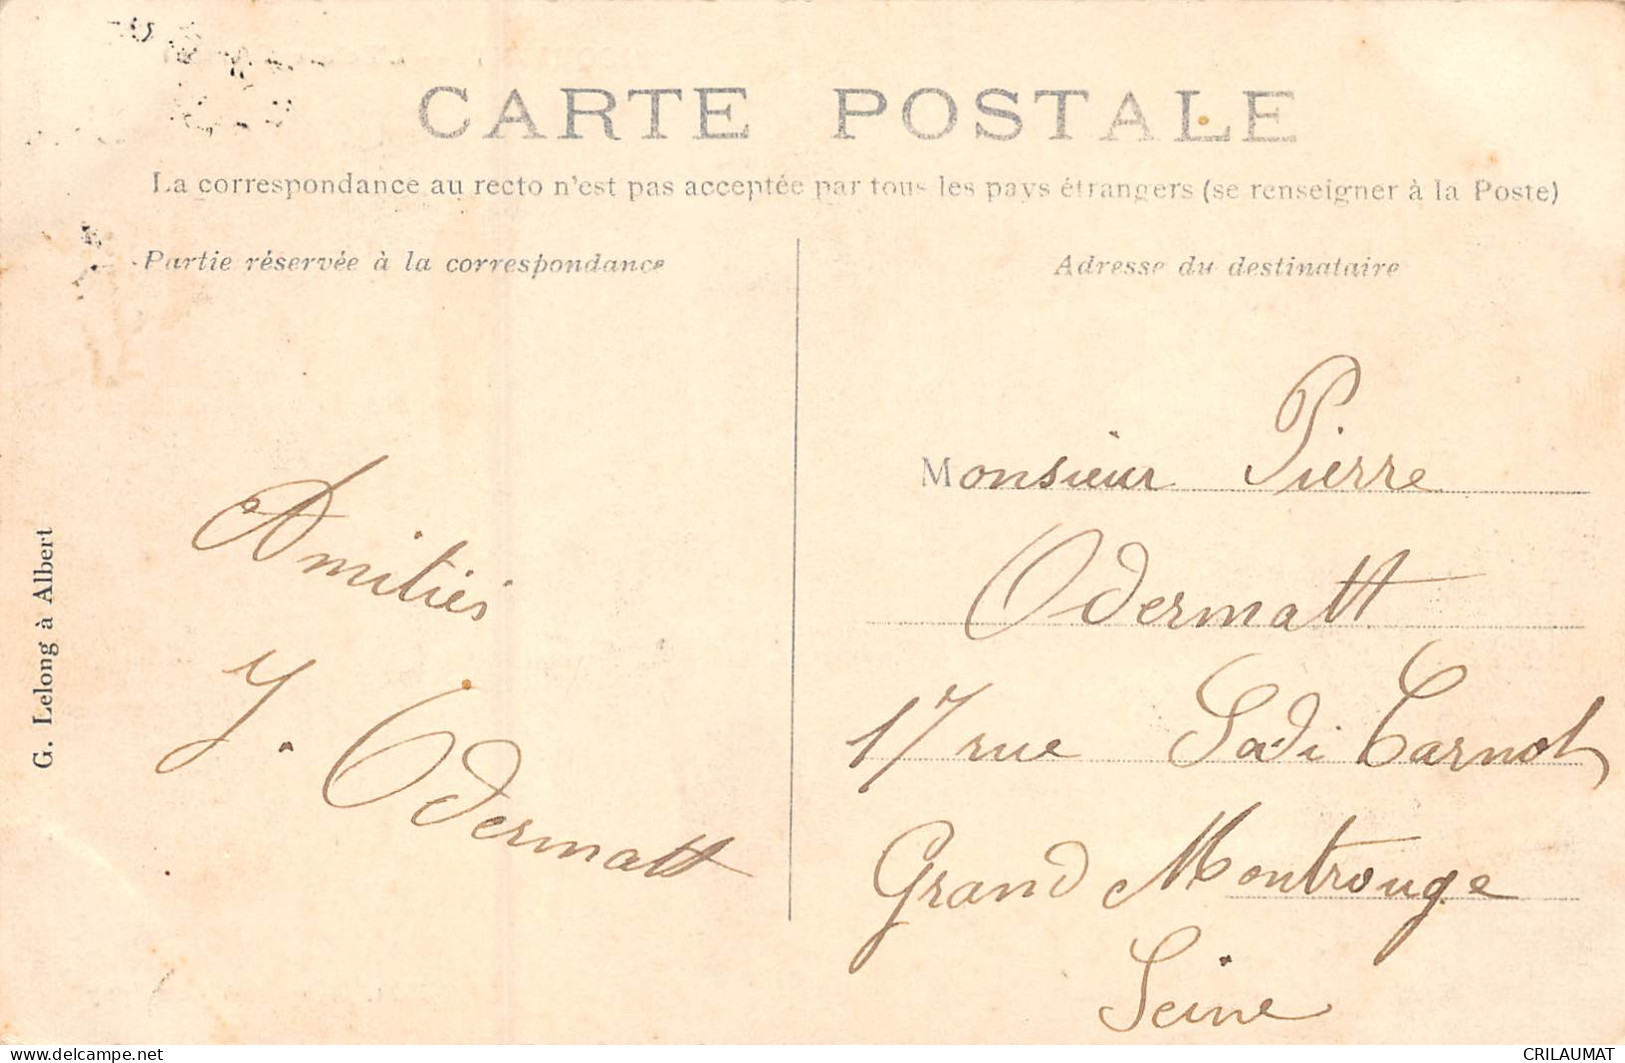 CARTE POSTALE
La correspondance au recto n'est pas acceptée par tous les pays étrangers (se renseigner à la Poste)
Partie réservée à la correspondance
Adresse du destinataire
Amitiés
Y. Odermatt
Monsieur Pierre
Odermatt
17 rue Sadi Carnot
Grand Montrouge
Seine
G. Lelong à Albert
https://www.delcampe.net
CRILAUMAT